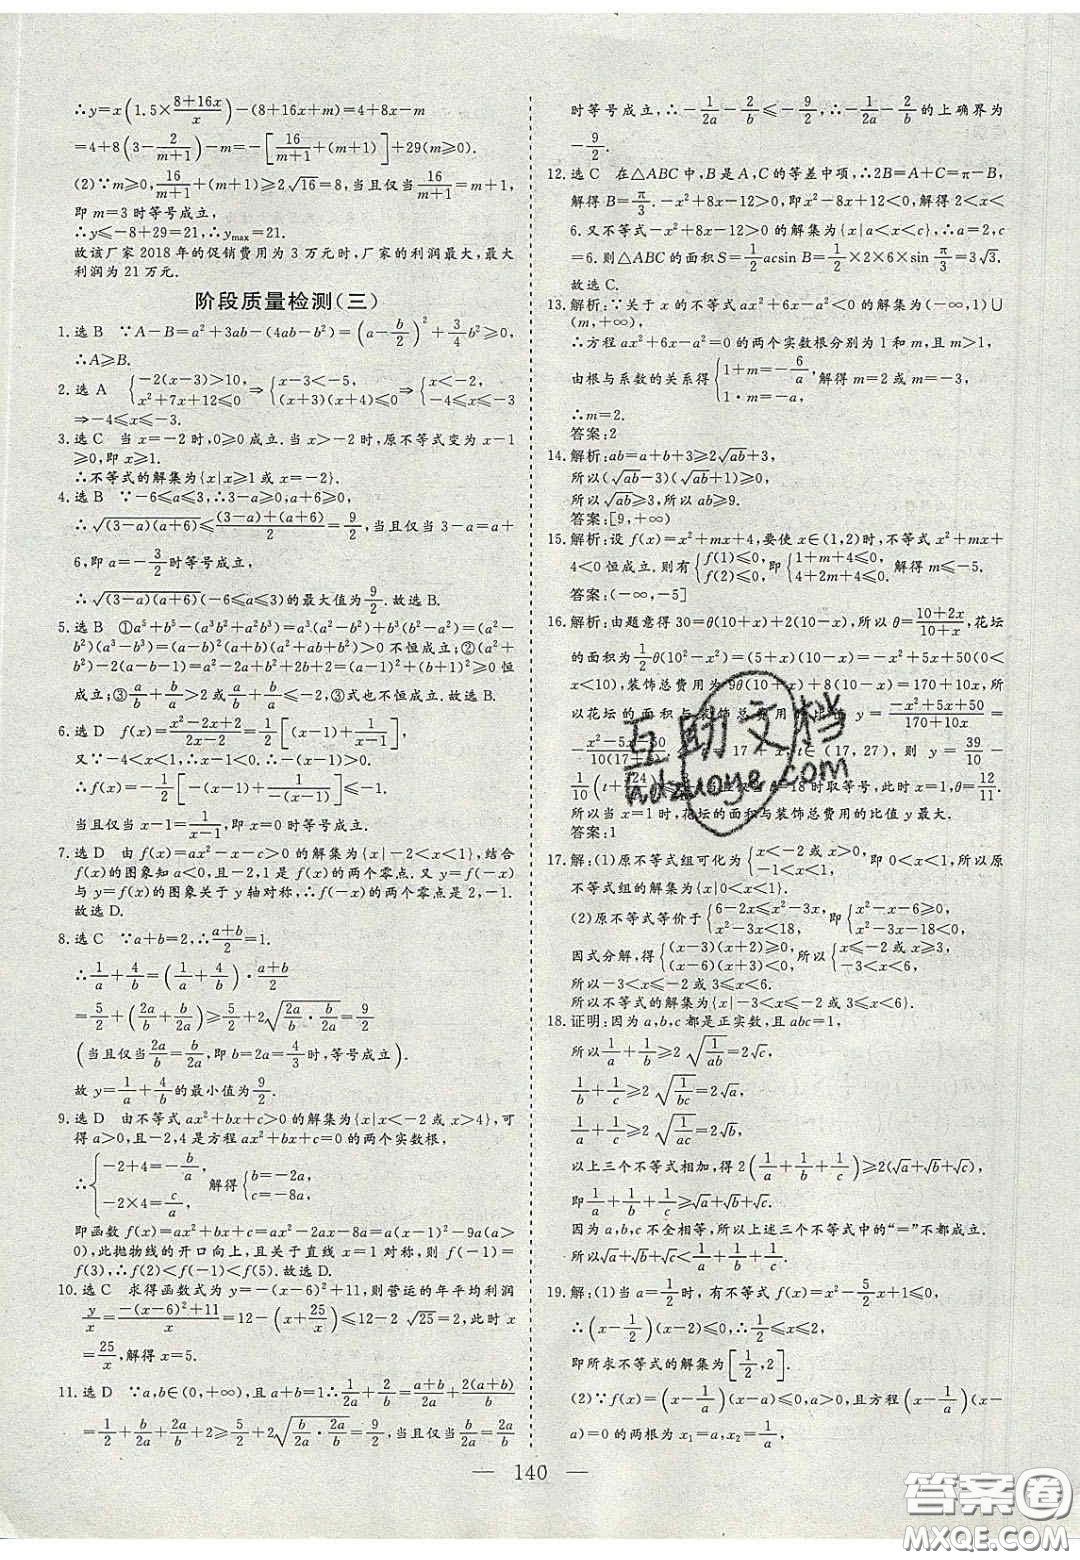 ∴y=x(1.5×(8+16x)/x)-(8+16x+m)=4+8x-m
=4+8(3-2/(m+1))-m=-[16/(m+1)+(m+1)]+29(m≥0).
(2)∵m≥0,16/(m+1)+(m+1)≥2√16=8,当且仅当16/(m+1)=m+1,
即m=3时等号成立,
∴y≤-8+29=21,∴ymax=21.
故该厂家2018年的促销费用为3万元时,厂家的利润最大,最大
利润为21万元.
阶段质量检测(三)
1.选B ∵A-B=a²+3ab-(4ab-b²)=(a-b/2)²+3/4b²≥0,
∴A≥B.
2.选A {-2(x-3)>10, x²+7x+12≤0 ⇒{x-3<-5, (x+3)(x+4)≤0 ⇒{x<-2, -4≤x≤-3
⇒-4≤x≤-3.
3.选C 当x=-2时,0≥0成立.当x>-2时,原不等式变为x-1
≥0,即x≥1.
∴不等式的解集为{x|x≥1或x=-2}.
4.选B ∵-6≤a≤3,∴3-a≥0,a+6≥0,
∴√((3-a)(a+6))≤((3-a)+(a+6))/2=9/2,当且仅当3-a=a+
6,即a=-3/2时等号成立,
∴√((3-a)(a+6))(-6≤a≤3)的最大值为9/2.故选B.
5.选B ①a⁵+b⁵-(a³b²+a²b³)=a³(a²-b²)+b³(b²-a²)=(a²-
b²)(a³-b³)=(a-b)²(a+b)(a²+ab+b²)>0不恒成立;②(a²+
b²)-2(a-b-1)=a²-2a+b²+2b+2=(a-1)²+(b+1)²≥0恒
成立;③a/b+b/a>2或a/b+b/a≤-2,③式也不恒成立.故选B.
6.选D f(x)=(x²-2x+2)/(2x-2)=1/2[(x-1)+1/(x-1)],
又∵-4<x<1,∴x-1<0.∴-(x-1)>0.
∴f(x)=-1/2[-(x-1)+1/(-(x-1))]≤-1.
当且仅当x-1=1/(x-1),即x=0时等号成立.
7.选D 由f(x)=ax²-x-c>0的解集为{x|-2<x<1},结合
f(x)的图象知a<0,且-2,1是f(x)的两个零点.又y=f(-x)
与y=f(x)的图象关于y轴对称,∴f(-x)的两个零点是2,-1.
故选D.
8.选C ∵a+b=2,∴(a+b)/2=1.
∴1/a+4/b=(1/a+4/b)·(a+b)/2
=5/2+(2a/b+b/2a)≥5/2+2√(2a/b·b/2a)=9/2
(当且仅当2a/b=b/2a,即b=2a=4/3时,等号成立).
故y=1/a+4/b的最小值为9/2.
9.选D 由不等式ax²+bx+c>0的解集为{x|x<-2或x>4},可
得a>0,且-2,4是方程ax²+bx+c=0的两个实数根,
∴{-2+4=-b/a, -2×4=c/a, 解得{b=-2a, c=-8a,
即函数f(x)=ax²+bx+c=ax²-2ax-8a=a(x-1)²-9a(a>
0),此抛物线的开口向上,且关于直线x=1对称,则f(-1)=
f(3),∴f(2)<f(-1)<f(5).故选D.
10.选C 求得函数式为y=-(x-6)²+11,则营运的年平均利润
y/x=(-(x-6)²+11)/x=12-(x+25/x)≤12-2√25=2,此时x
=25/x,解得x=5.
11.选D ∵a,b∈(0,+∞),且a+b=1,∴1/2a+2/b=(a+b)/2a+2(a+b)/b
=1/2+b/2a+2a/b+2≥5/2+2√(b/2a·2a/b)=9/2,当且仅当b/2a=2a/b
时等号成立,∴-1/2a-2/b≤-9/2,∴-1/2a-2/b的上确界为
-9/2.
12.选C 在△ABC中,B是A,C的等差中项,∴2B=A+C=π-B,
解得B=π/3.-x²+8x-12>0,即x²-8x+12<0,解得2<x<
6.又不等式-x²+8x-12>0的解集为{x|a<x<c},∴a=2,c
=6.则△ABC的面积S=1/2acsin B=1/2×2×6×sinπ/3=3√3.
故选C.
13.解析:∵关于x的不等式ax²+6x-a²<0的解集为(-∞,1)∪
(m,+∞),
∴方程ax²+6x-a²=0的两个实数根分别为1和m,且m>1,
由根与系数的关系得{1+m=-6/a, 1·m=-a, 解得m=2或m=-3,
∴m=2.
答案:2
14.解析:ab=a+b+3≥2√ab+3,
所以(√ab-3)(√ab+1)≥0,
所以√ab≥3,所以ab≥9.
答案:[9,+∞)
15.解析:设f(x)=x²+mx+4,要使x∈(1,2)时,不等式x²+mx+
4<0恒成立.则有{f(1)≤0, f(2)≤0, 即{1+m+4≤0, 4+2m+4≤0. 解得m≤-5.
答案:(-∞,-5]
16.解析:由题意得30=θ(10+x)+2(10-x),所以θ=(10+2x)/(10+x),花坛
的面积为1/2θ(10²-x²)=(5+x)(10-x)=-x²+5x+50(0<
x<10),装饰总费用为9θ(10+x)+8(10-x)=170+10x,所
以花坛的面积与装饰总费用 y=(-x²+5x+50)/(170+10x)=
-(x²-5x-50)/(10(17+ 17+x t∈(17,27),则y=39/10-
1/10(t+ =18时取等号,此时x=1,θ=12/11.
所以当x=1时,花坛的面积与装饰总费用的比值y最大.
答案:1
17.解:(1)原不等式组可化为{x<-2或x>0, -1<x<1, 即0<x<1,所以原
不等式组的解集为{x|0<x<1}.
(2)原不等式等价于{6-2x≤x²-3x, x²-3x<18, 即{x²-x-6≥0, x²-3x-18<0.
因式分解,得{(x-3)(x+2)≥0, (x-6)(x+3)<0, 所以{x≤-2或x≥3, -3<x<6,
所以-3<x≤-2或3≤x<6.
所以不等式的解集为{x|-3<x≤-2或3≤x<6}.
18.证明:因为a,b,c都是正实数,且abc=1,
所以1/a+1/b≥2√(1/ab)=2√c,
1/b+1/c≥2√(1/bc)=2√a,
1/a+1/c≥2√(1/ac)=2√b,
以上三个不等式相加,得2(1/a+1/b+1/c)≥2(√a+√b+√c),
即1/a+1/b+1/c≥√a+√b+√c.
因为a,b,c不全相等,所以上述三个不等式中的“=”不都成立.
所以√a+√b+√c<1/a+1/b+1/c.
19.解:(1)当a=1/2时,有不等式f(x)=x²-5/2x+1≤0,
∴(x-1/2)(x-2)≤0,∴1/2≤x≤2,
即所求不等式的解集为[1/2,2].
(2)∵f(x)=(x-1/a)(x-a)≤0,a>0,且方程(x-1/a)(x-
a)=0的两根为x₁=a,x₂=1/a,
— 140 —
互助文档
hdzuoye.com
答案圈
MXQE.COM